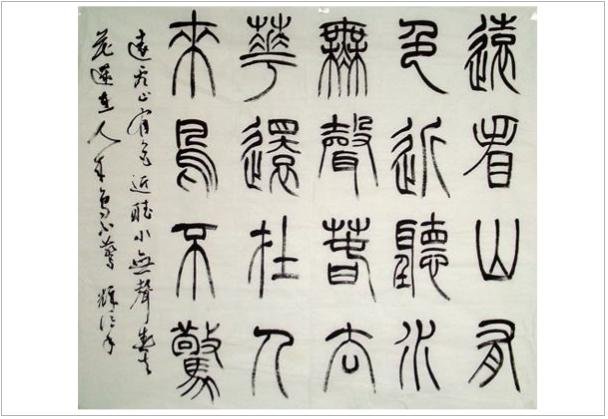 遠看山有
色近聽水
無聲春去
華還在人
來鳥不驚
遠看山有色近聽水無聲春去
花還在人來鳥不驚